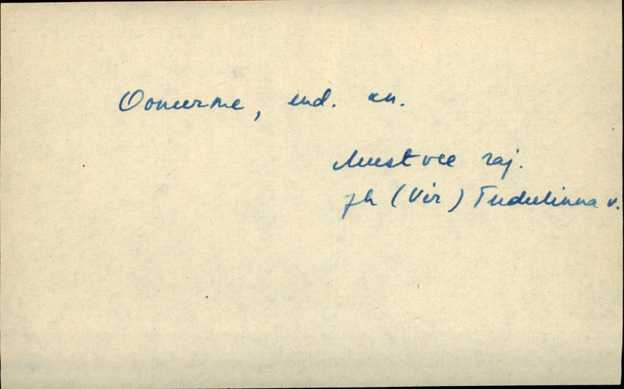 Oonurme, end. as.
Mustvee raj.
Jh (Vir) Tudulinna v.